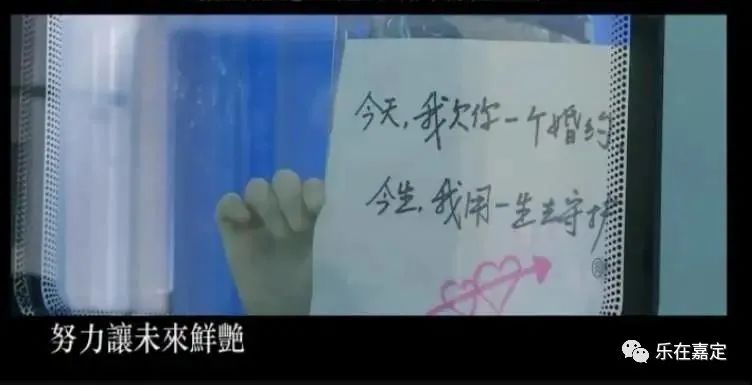 今天,我欠你一个婚约
今生,我用一生去守护
努力讓未來鮮艷
乐在嘉定